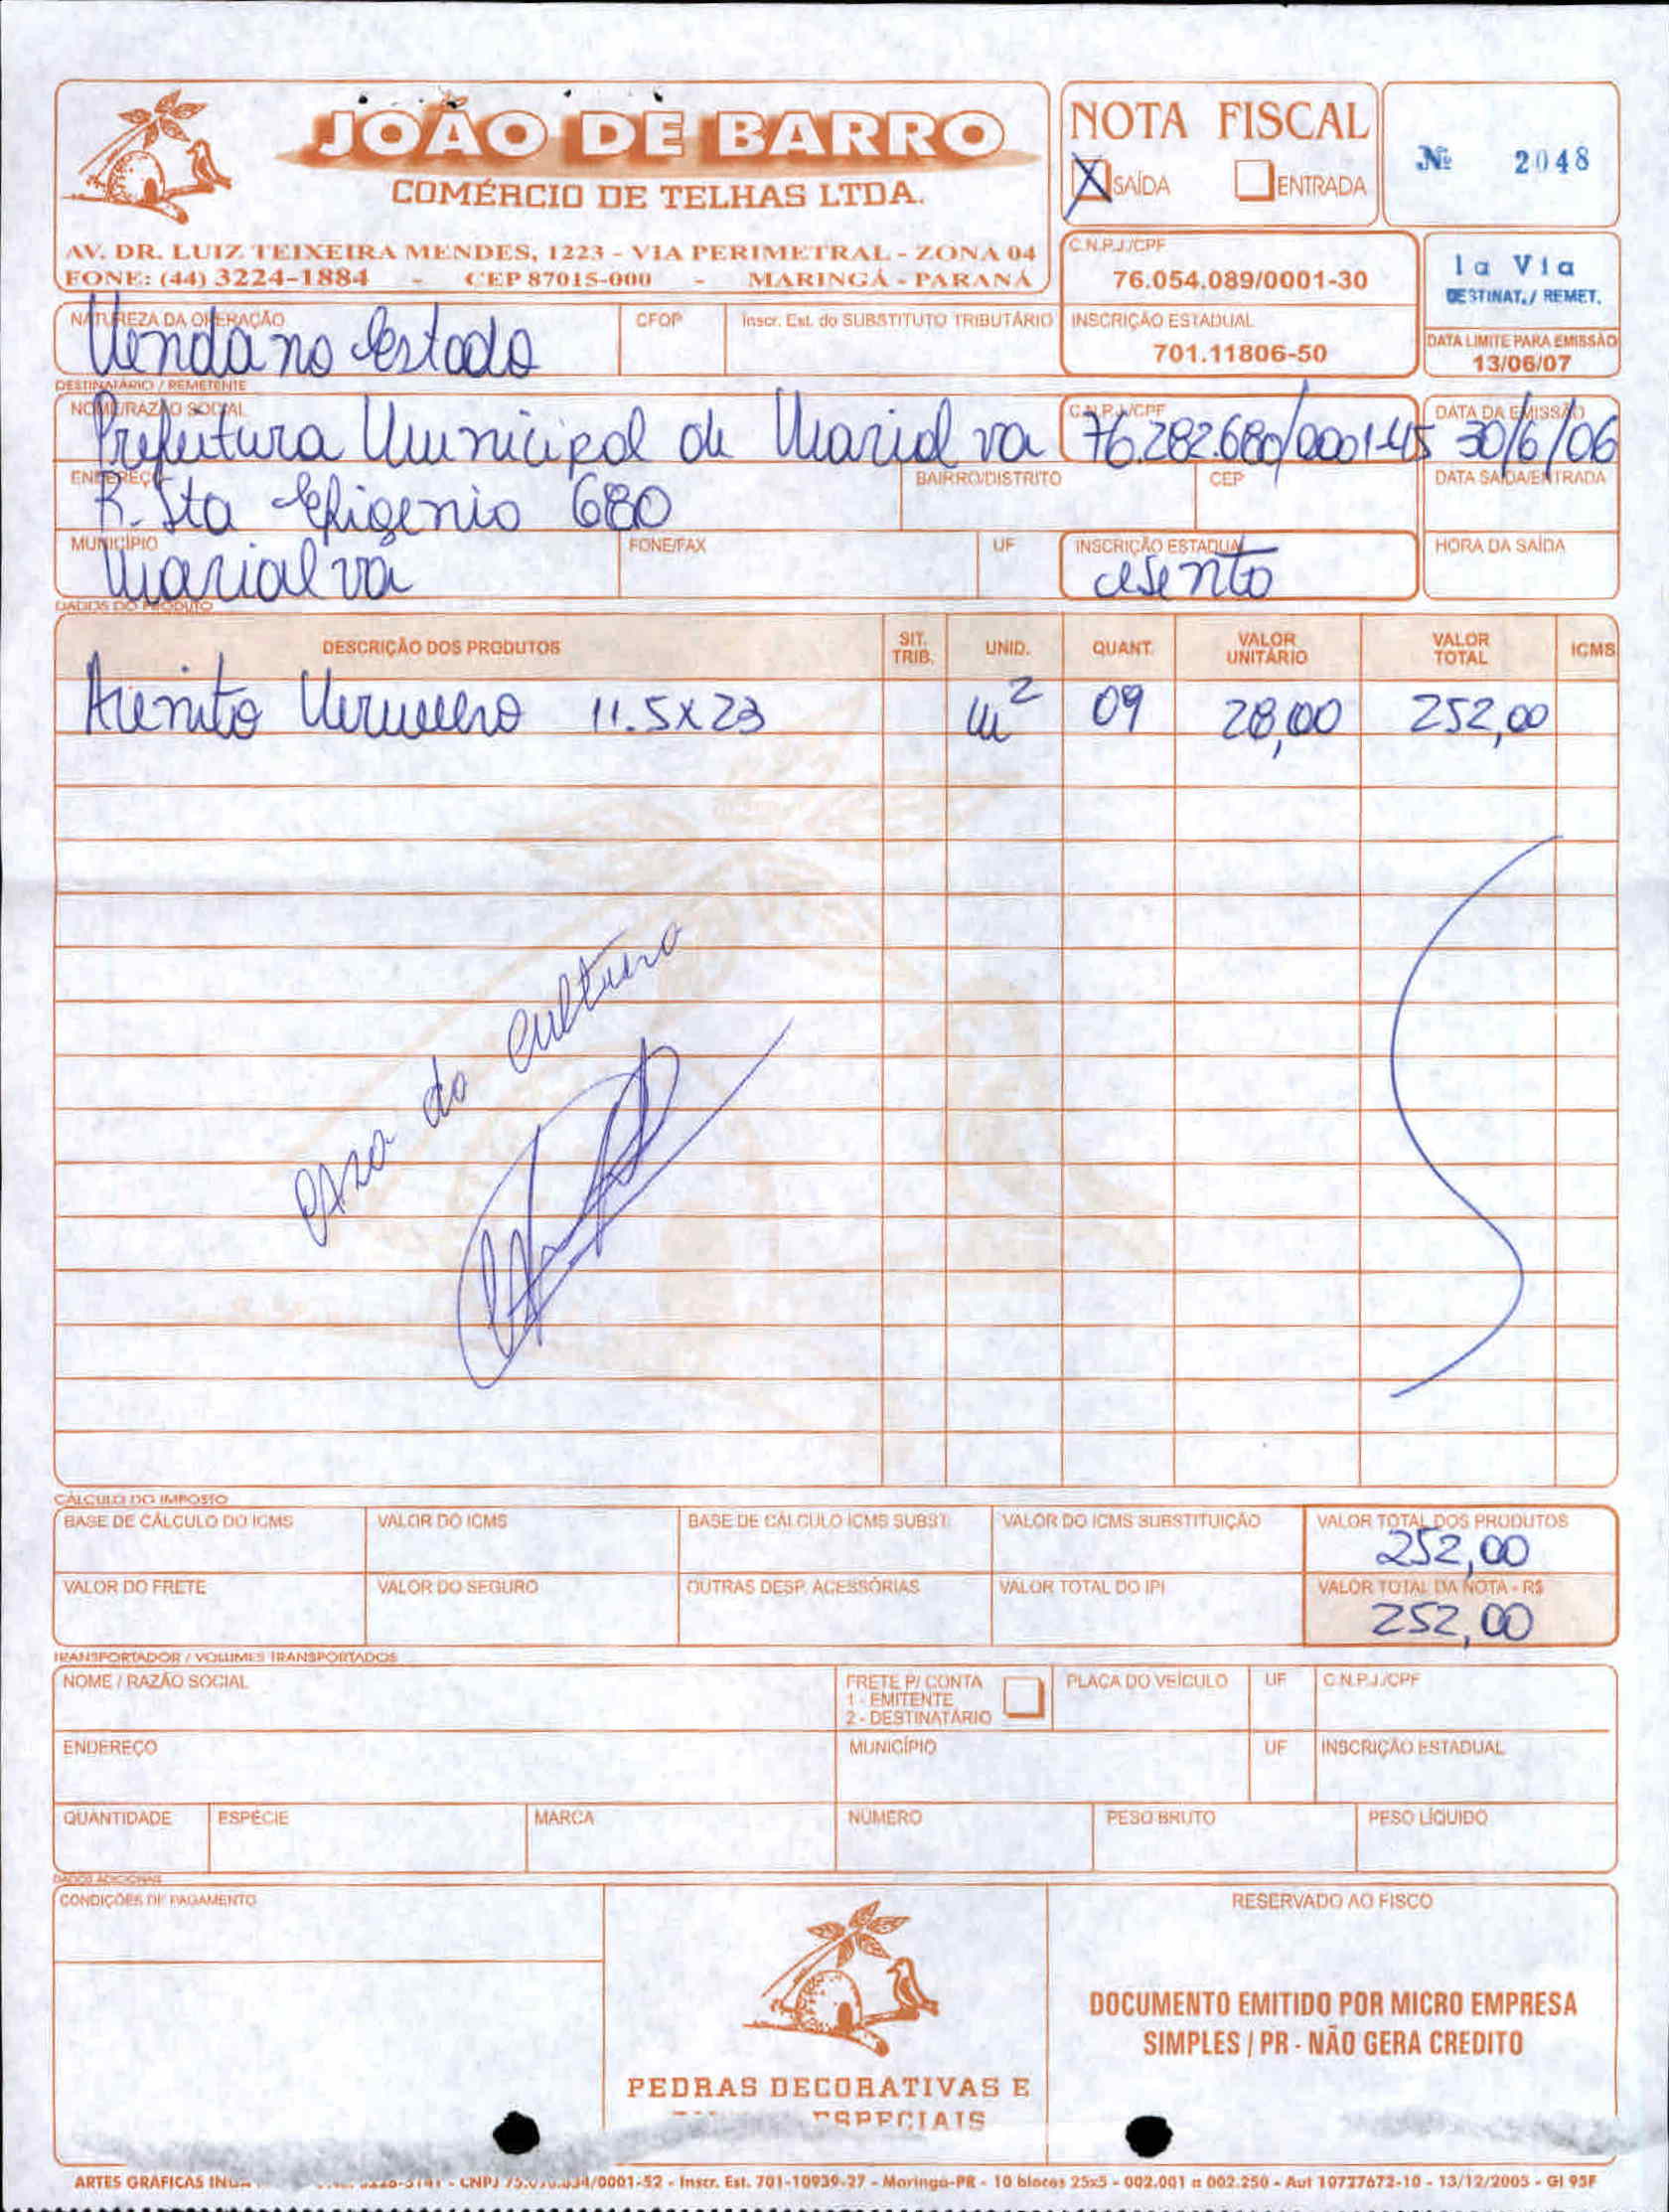 JOÃO DE BARRO
COMÉRCIO DE TELHAS LTDA.
AV. DR. LUIZ TEIXEIRA MENDES, 1223 - VIA PERIMETRAL - ZONA 04
FONE: (44) 3224-1884 - CEP 87015-000 - MARINGÁ - PARANÁ
NOTA FISCAL
X SAÍDA ENTRADA
Nº 2048
C.N.P.J./CPF
76.054.089/0001-30
1a Via
DESTINAT./ REMET.
NATUREZA DA OPERAÇÃO CFOP Inscr. Est. do SUBSTITUTO TRIBUTÁRIO INSCRIÇÃO ESTADUAL
Venda no Estado 701.11806-50
DATA LIMITE PARA EMISSÃO
13/06/07
DESTINATÁRIO / REMETENTE
NOME/RAZÃO SOCIAL C.N.P.J./CPF DATA DA EMISSÃO
Prefeitura Municipal de Marialva 76.282.680/0001-45 30/6/06
ENDEREÇO BAIRRO/DISTRITO CEP DATA SAÍDA/ENTRADA
R. Sta Efigenio 680
MUNICÍPIO FONE/FAX UF INSCRIÇÃO ESTADUAL HORA DA SAÍDA
Marialva esento
DADOS DO PRODUTO
DESCRIÇÃO DOS PRODUTOS SIT. TRIB. UNID. QUANT. VALOR UNITÁRIO VALOR TOTAL ICMS
Arenito Vermelho 11.5x23 m² 09 28,00 252,00
casa da cultura
CÁLCULO DO IMPOSTO
BASE DE CÁLCULO DO ICMS VALOR DO ICMS BASE DE CALCULO ICMS SUBST. VALOR DO ICMS SUBSTITUIÇÃO VALOR TOTAL DOS PRODUTOS
252,00
VALOR DO FRETE VALOR DO SEGURO OUTRAS DESP. ACESSÓRIAS VALOR TOTAL DO IPI VALOR TOTAL DA NOTA - R$
252,00
TRANSPORTADOR / VOLUMES TRANSPORTADOS
NOME / RAZÃO SOCIAL FRETE P/ CONTA PLACA DO VEÍCULO UF C.N.P.J./CPF
1 - EMITENTE
2 - DESTINATÁRIO
ENDEREÇO MUNICÍPIO UF INSCRIÇÃO ESTADUAL
QUANTIDADE ESPÉCIE MARCA NÚMERO PESO BRUTO PESO LÍQUIDO
DADOS ADICIONAIS
CONDIÇÕES DE PAGAMENTO
RESERVADO AO FISCO
DOCUMENTO EMITIDO POR MICRO EMPRESA
SIMPLES / PR - NÃO GERA CREDITO
PEDRAS DECORATIVAS E
ESPECIAIS
ARTES GRÁFICAS - CNPJ /0001-52 - Inscr. Est. 701-10939-27 - Maringá-PR - 10 blocos 25x5 - 002.001 a 002.250 - Aut 10727672-10 - 13/12/2005 - GI 95F